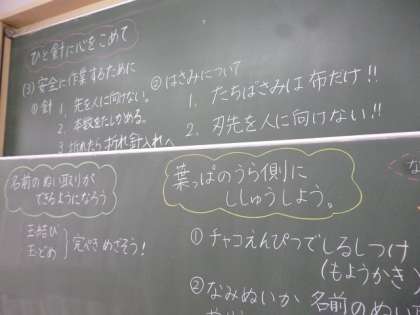 ひと針に心をこめて
(3) 安全に作業するために
① 針
1. 先を人に向けない。
2. 本数をたしかめる。
3. 折れたら折れ針入れへ
② はさみについて
1. たちばさみは布だけ!!
2. 刃先を人に向けない!!
名前のぬい取りが
できるようになろう
玉結び
玉どめ
完ぺきめざそう!
葉っぱのうら側に
ししゅうしよう。
① チャコえんぴつでしるしつけ
(もようかき
② なみぬいか 名前のぬい
な